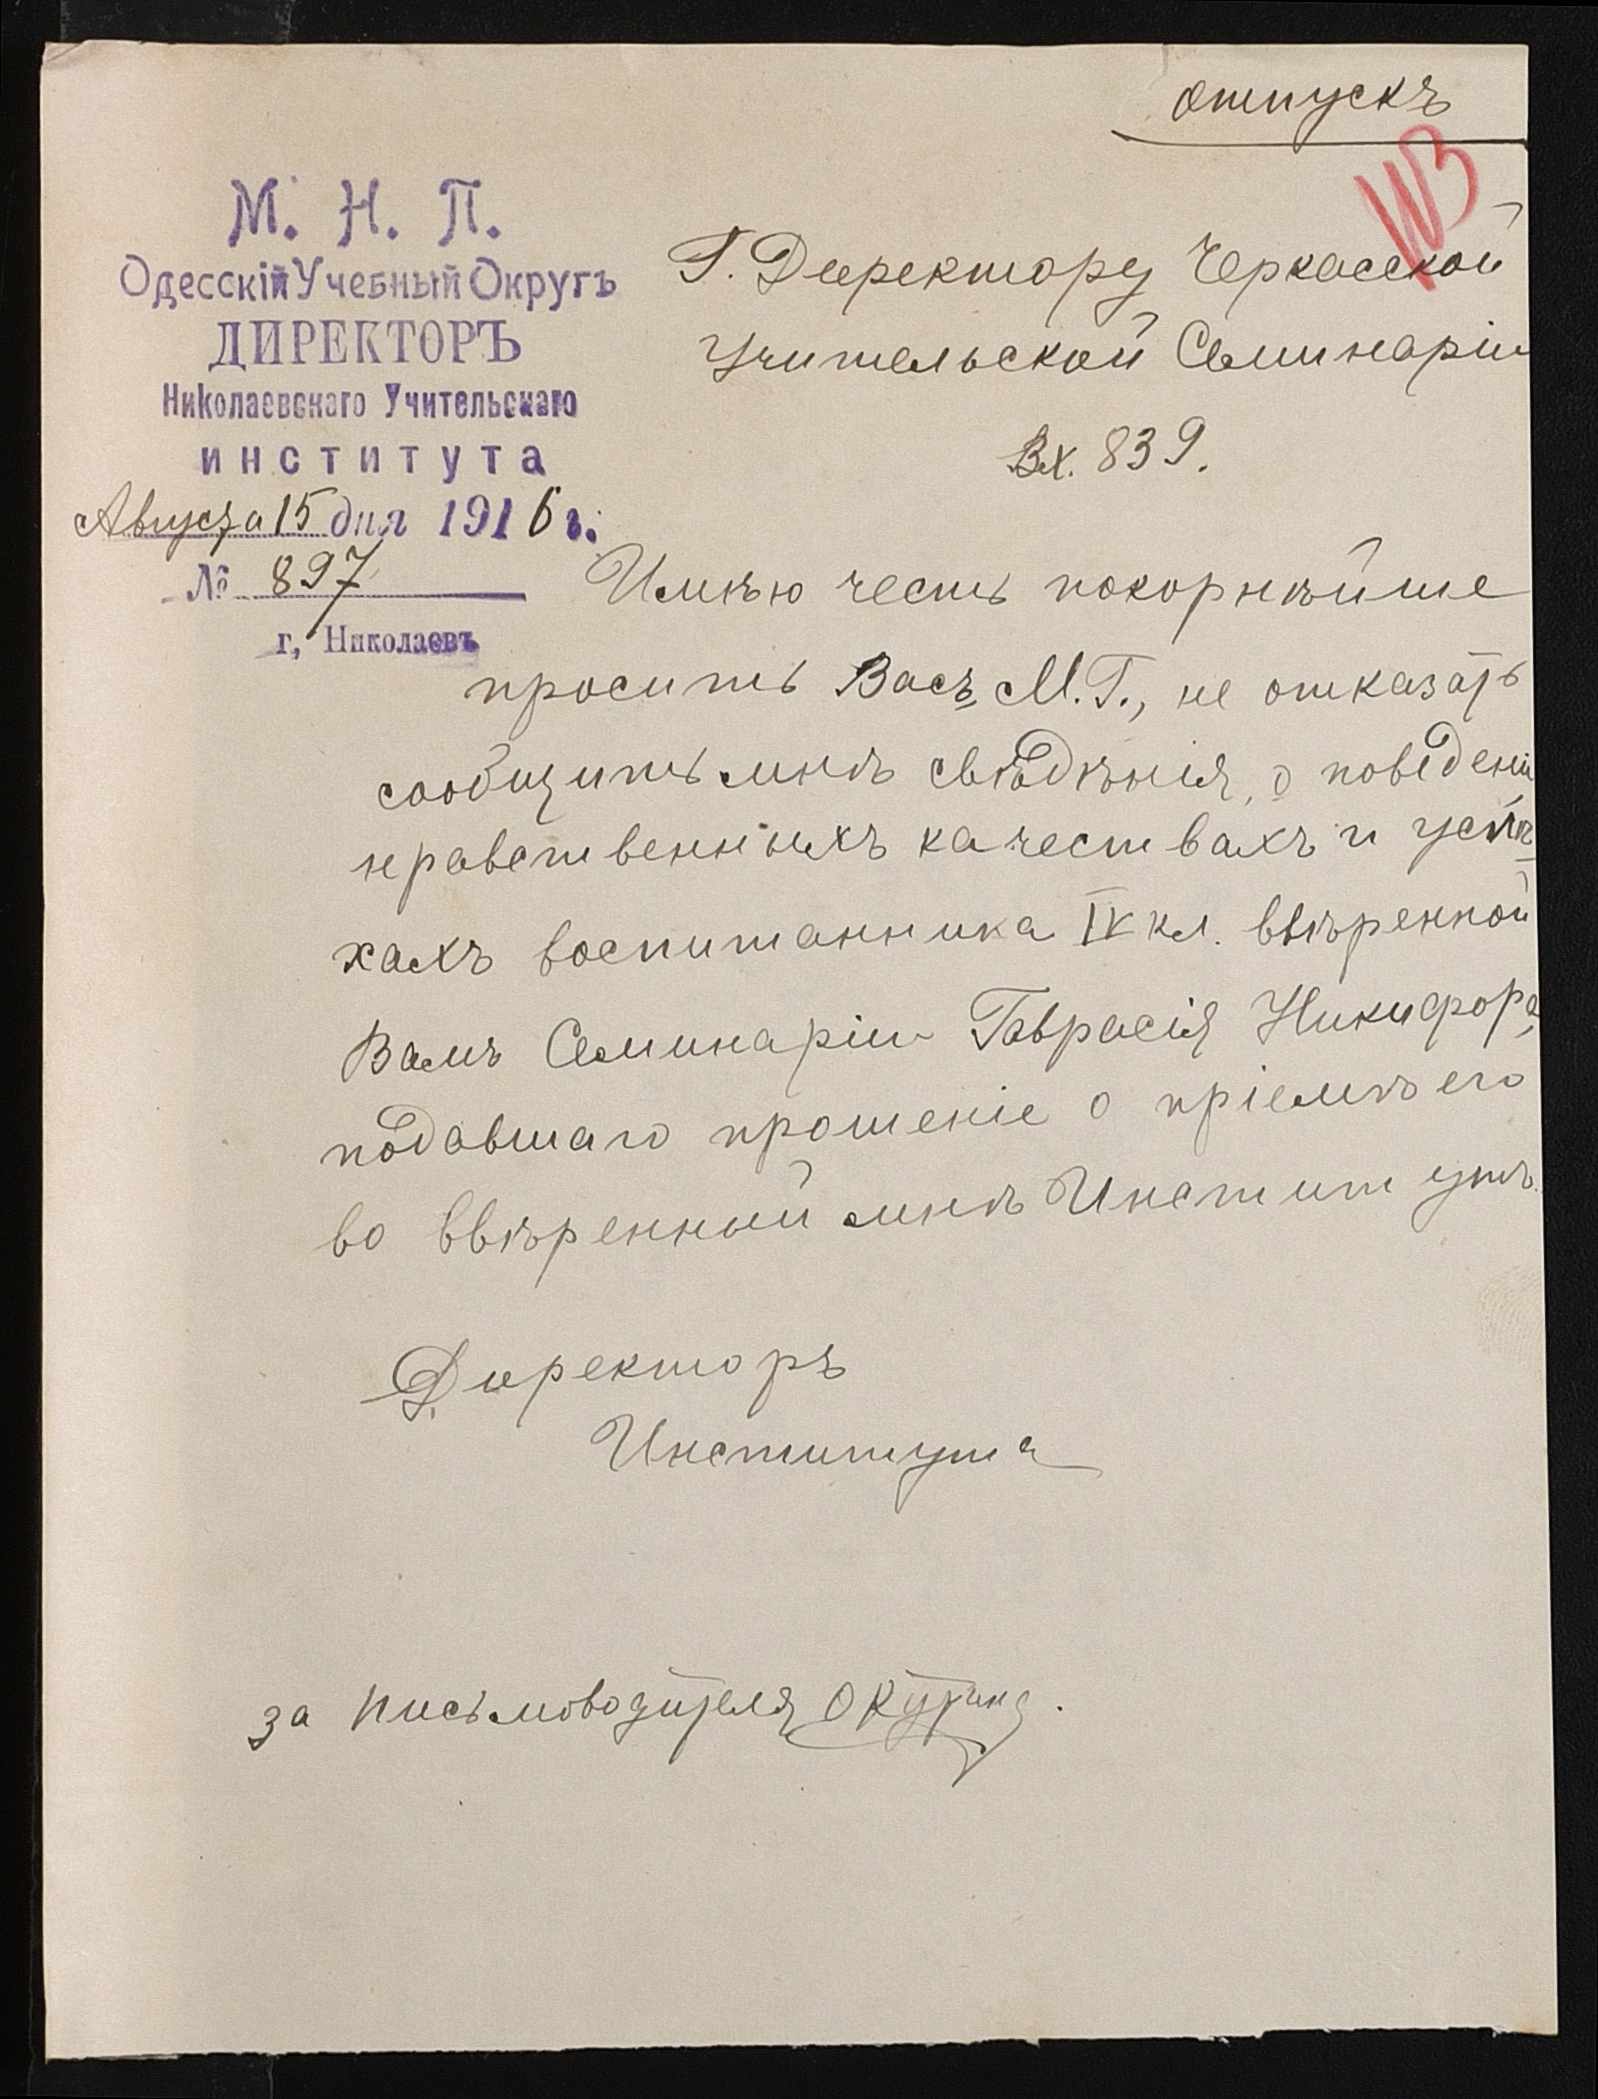 отпускъ
М. Н. П.
Одесскій Учебный Округъ
ДИРЕКТОРЪ
Николаевскаго Учительскаго
института
Августа 15 дня 1916 г.
№ 897
г, Николаевъ
Г. Директору Черкасской
Учительской Семинаріи
Вх. 839.
Имѣю честь покорнѣйше
просить Васъ, М.Г., не отказать
сообщить мнѣ свѣдѣнія о поведеніи
нравственныхъ качествахъ и успѣ-
хахъ воспитанника IV кл. ввѣренной
Вамъ Семинаріи Гаврасія Никифора,
подавшаго прошеніе о пріемѣ его
во ввѣренный мнѣ Институтъ.
Директоръ
Института
за письмоводителя